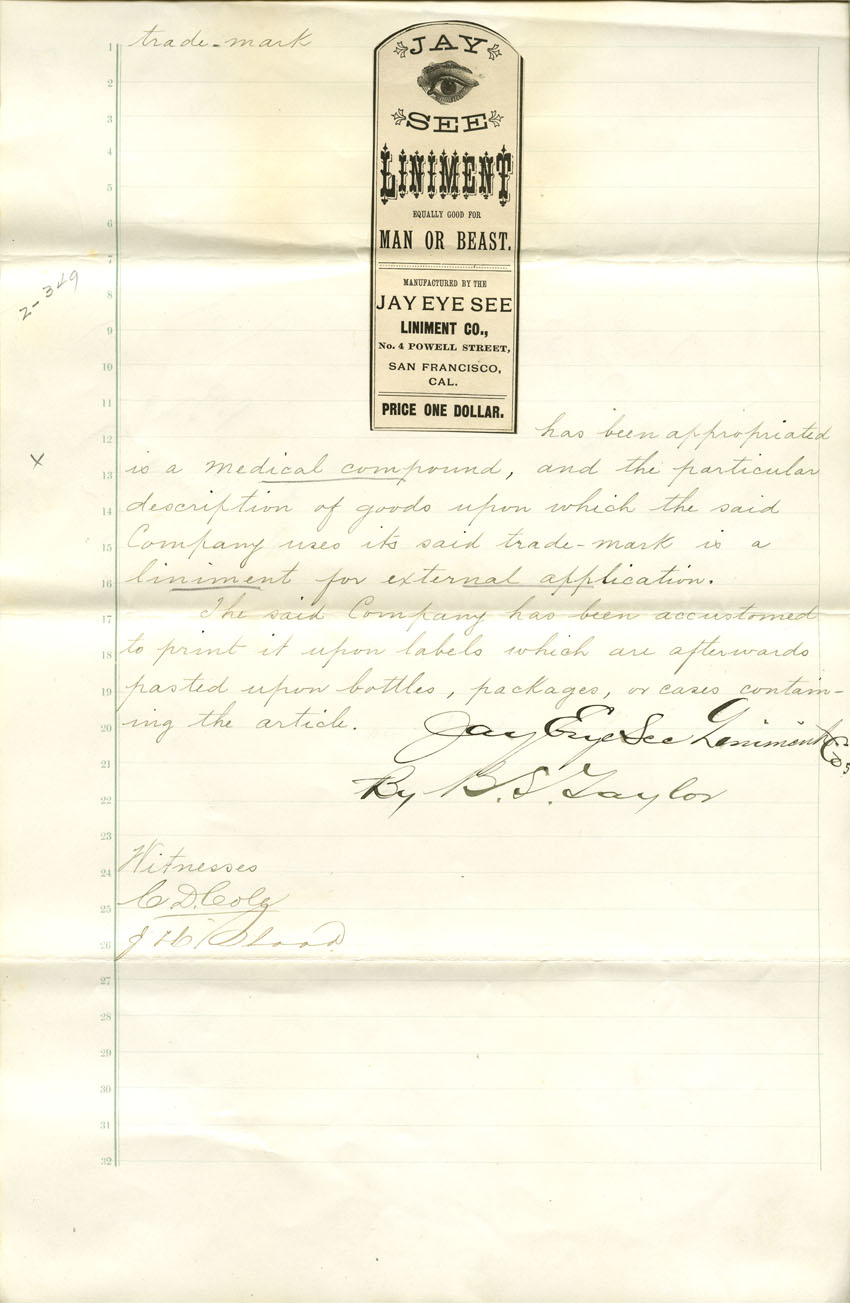 1 trade-mark
JAY
SEE
LINIMENT
EQUALLY GOOD FOR
MAN OR BEAST.
MANUFACTURED BY THE
JAY EYE SEE
LINIMENT CO.,
No. 4 POWELL STREET,
SAN FRANCISCO,
CAL.
PRICE ONE DOLLAR.
2
3
4
5
6
7
8
2-349
9
10
11
12 has been appropriated
X
13 is a medical compound, and the particular
14 description of goods upon which the said
15 Company uses its said trade-mark is a
16 liniment for external application.
17 The said Company has been accustomed
18 to print it upon labels which are afterwards
19 pasted upon bottles, packages, or cases contain-
20 ing the article.
Jay Eye See Liniment Co.
21
By B. S. Taylor
22
23
24 Witnesses
25 C. D. Cole
26
27
28
29
30
31
32